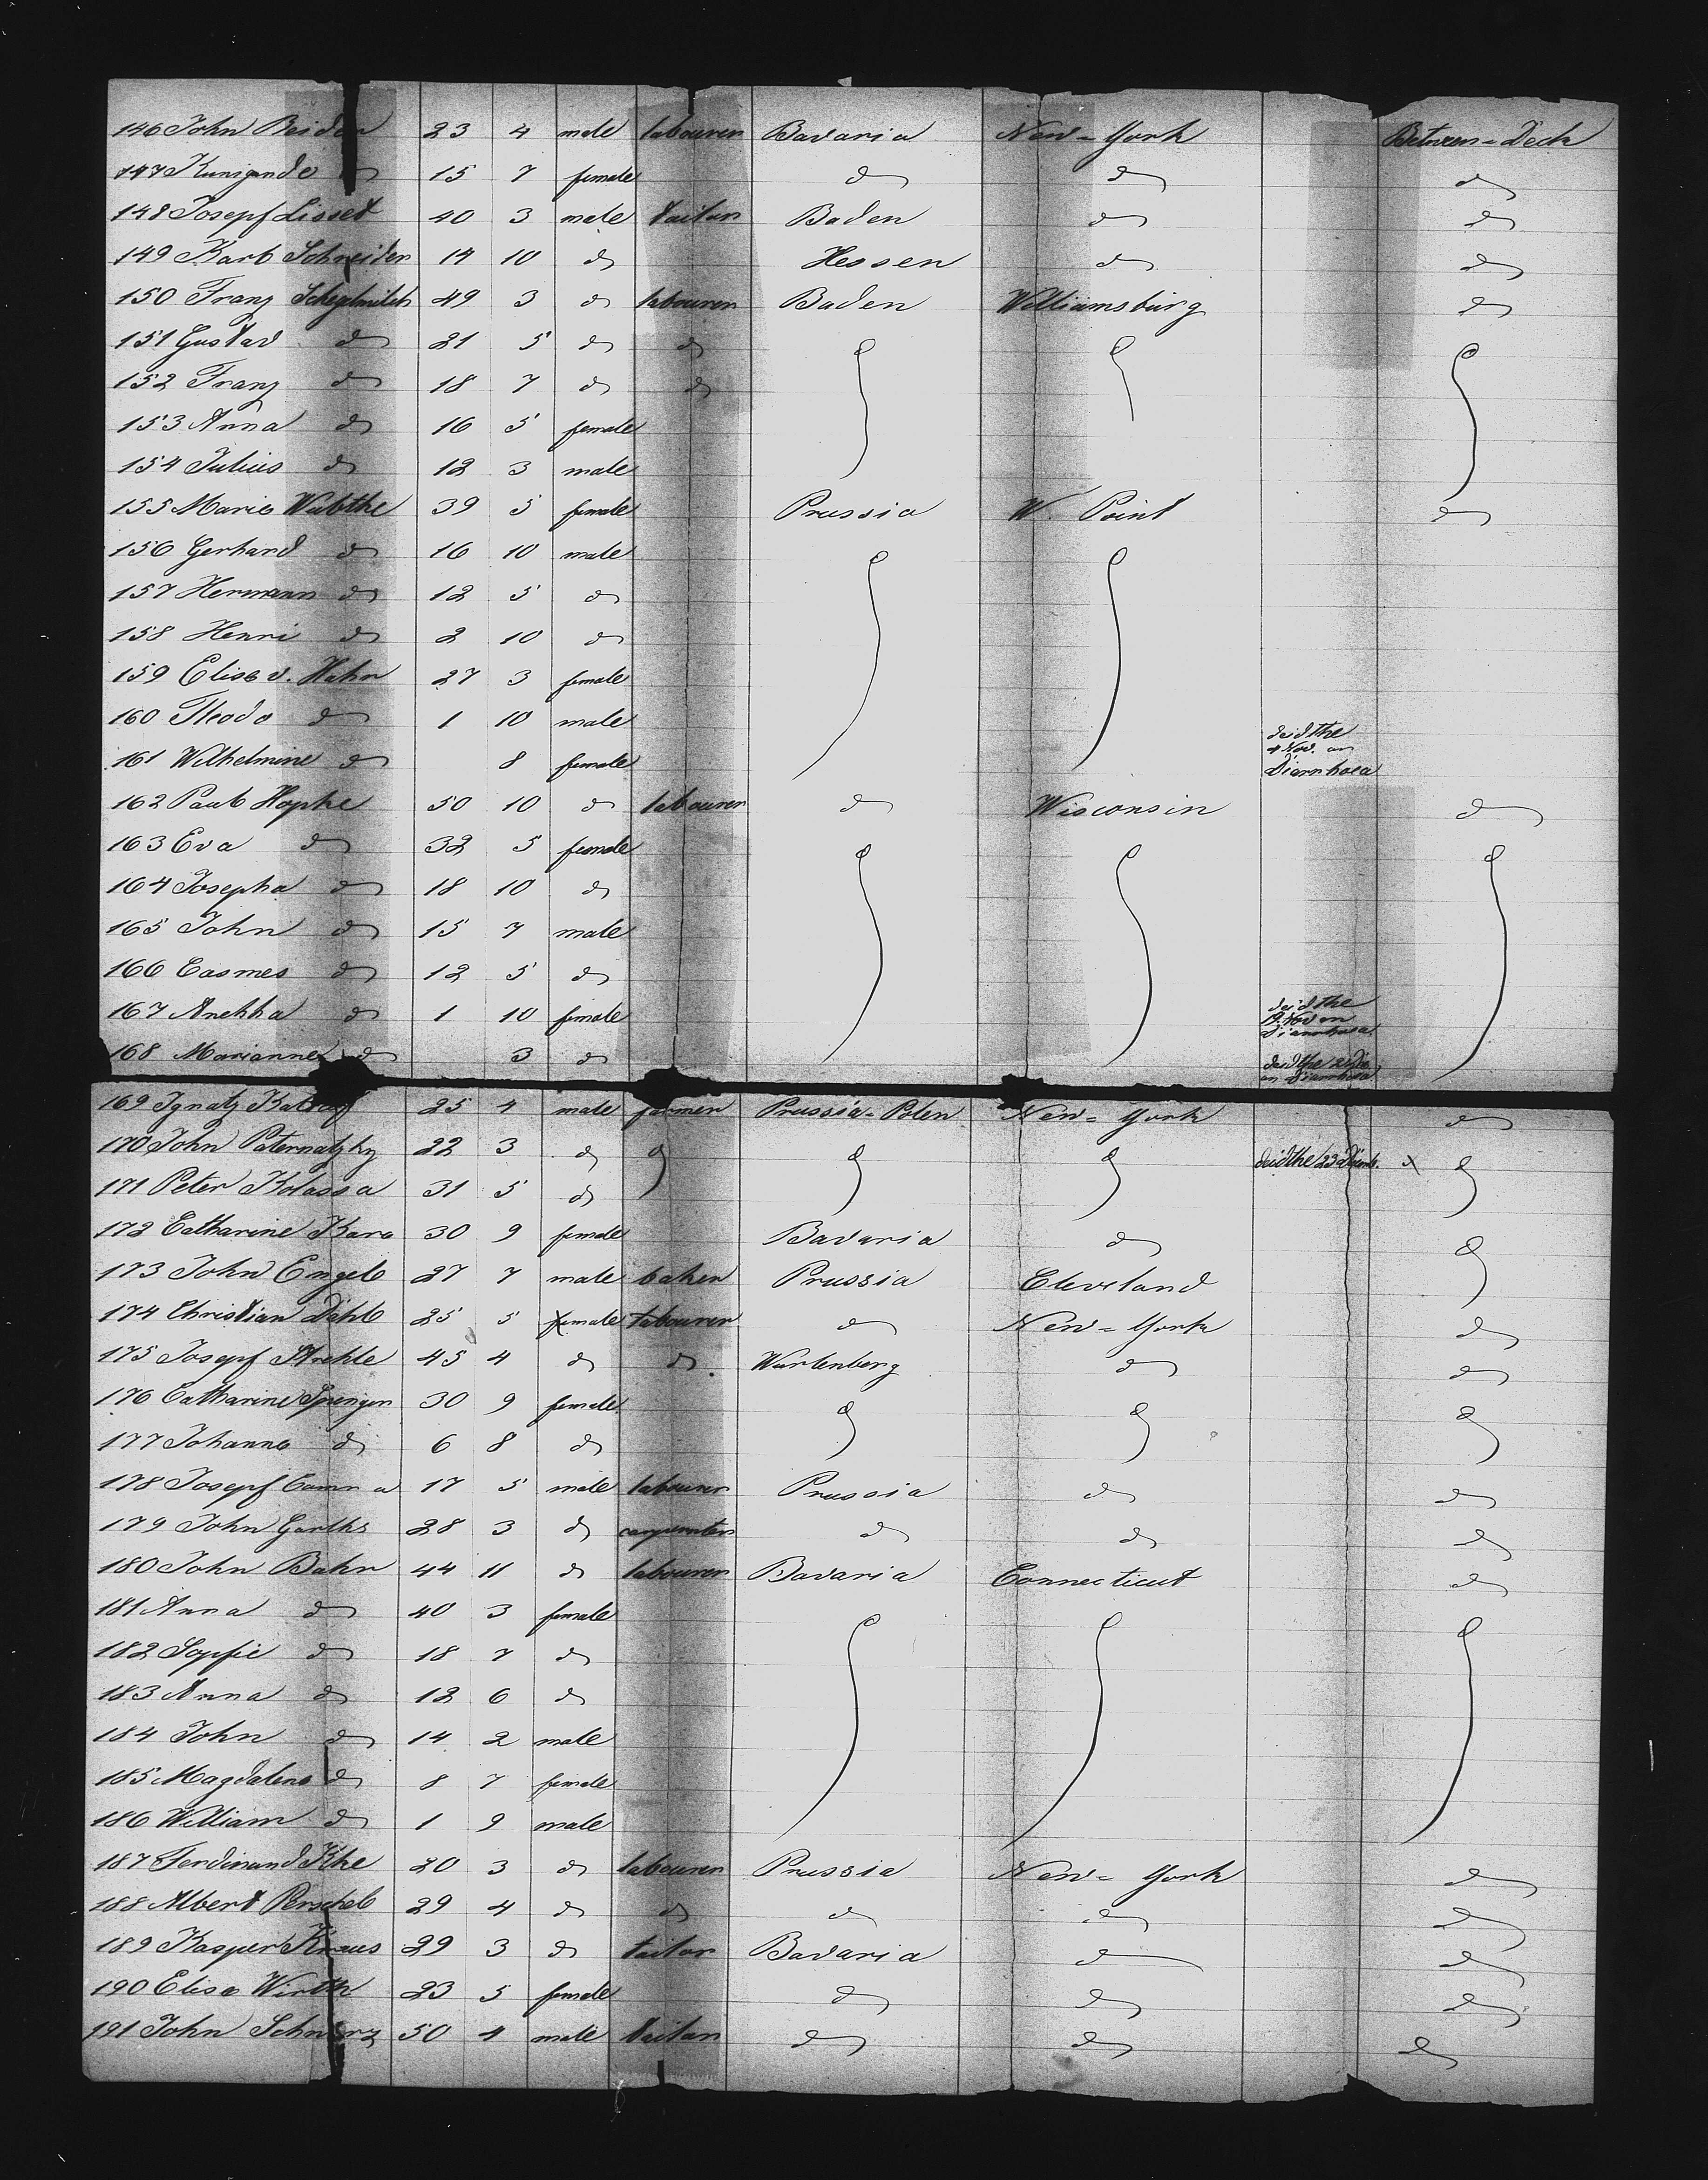 146 John 23 4 male labourer Bavaria New-York Between-Deck
147 Kunigunde d 15 7 female d d d
148 Josepf Lisset 40 3 male Tailor Baden d d
149 Karl Schneider 14 10 d Hessen d d
150 Franz 49 3 d labourer Baden Williamsburg d
151 Gustav d 21 5 d d
152 Franz d 18 7 d d
153 Anna d 16 5 female
154 Julius d 12 3 male
155 Marie Wubthe 39 5 female Prussia W. Point d
156 Gerhard d 16 10 male
157 Hermann d 12 5 d
158 Henri d 2 10 d
159 Elise v. Hahn 27 3 female
160 Theodo d 1 10 male
161 Wilhelmine d 8 female deid the 4 Nov. on Diarrhoea
162 Paul Hopke 50 10 d labourer d Wisconsin d
163 Eva d 32 5 female
164 Josepha d 18 10 d
165 John d 15 7 male
166 Casmes d 12 5 d
167 Anehka d 1 10 female deid the 19. Nov on Diarrhoea
168 Marianne d 3 d deid the on Diarrhoea
169 Ignatz 25 4 male farmer Prussia-Polen New-York d
170 John Paternatzky 22 3 d deid the 23 x
171 Peter Kolassa 31 5 d
172 Catharine Kara 30 9 female Bavaria d
173 John Engel 27 7 male baker Prussia Cleveland
174 Christian Dähl 25 5 female labourer d New-York d
175 Josepf Strehle 45 4 d d Wurtenberg d d
176 Catharine Springer 30 9 female
177 Johanna d 6 8 d
178 Josepf Camra 17 5 male labourer Prussia d d
179 John Garths 28 3 d carpenter d d d
180 John Bahr 44 11 d labourer Bavaria Connecticut d
181 Anna d 40 3 female
182 Sopfie d 18 7 d
183 Anna d 12 6 d
184 John d 14 2 male
185 Magdalena d 8 7 female
186 William d 1 9 male
187 Ferdinand Kthe 20 3 d labourer Prussia New-York d
188 Albert Perschel 29 4 d d d d d
189 Kasper Kraus 29 3 d tailor Bavaria d d
190 Elise Wirth 23 5 female d d d
191 John 50 4 male Tailor d d d